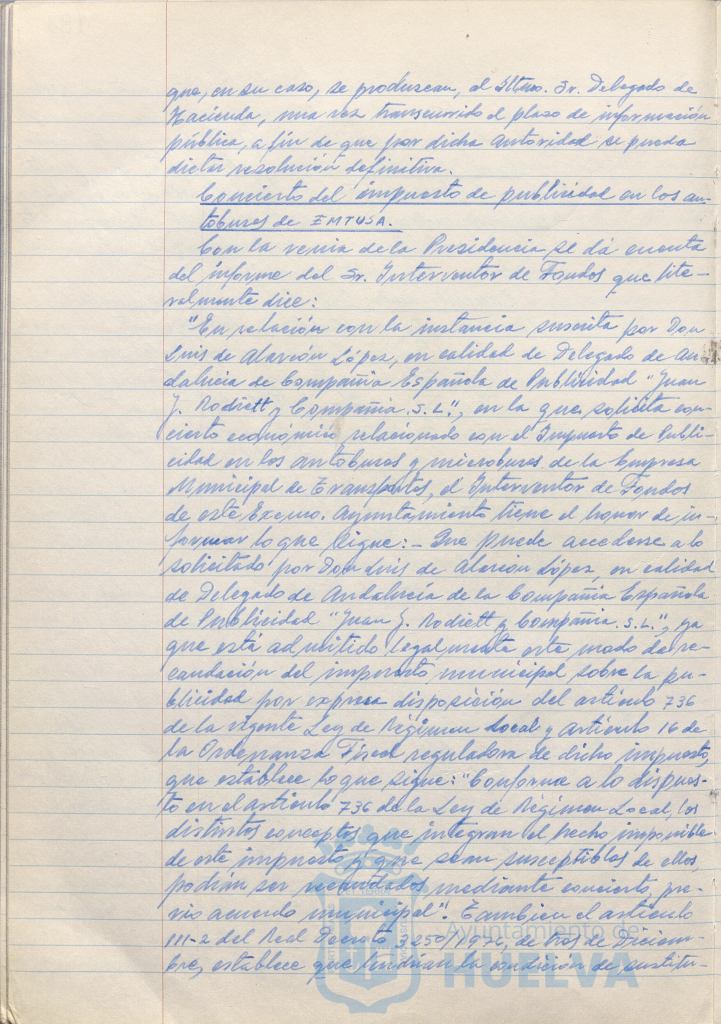 que, en su caso, se produzcan, al Iltmo. Sr. Delegado de
Hacienda, una vez transcurrido el plazo de información
pública, a fin de que por dicha Autoridad se pueda
dictar resolución definitiva.
Concierto del impuesto de publicidad en los au-
tobuses de EMTUSA.
Con la venia de la Presidencia se dá cuenta
del informe del Sr. Interventor de Fondos que lite-
ralmente dice:
"En relación con la instancia suscrita por Don
Luis de Alarcón López, en calidad de Delegado de An-
dalucia de Compañia Española de Publicidad "Juan
J. Rodiett y Compañia. S.L.", en la que solicita con-
cierto económico relacionado con el Impuesto de Publi-
cidad en los autobuses y microbuses de la Empresa
Municipal de Transportes, el Interventor de Fondos
de este Excmo. Ayuntamiento tiene el honor de in-
formar lo que sigue:- Que puede accederse a lo
solicitado por Don Luis de Alarcón López, en calidad
de Delegado de Andalucía de la Compañia Española
de Publicidad "Juan J. Rodiett y Compañia. S.L.", ya
que está admitido legalmente este modo de re-
caudación del impuesto municipal sobre la pu-
blicidad por expresa disposición del artículo 736
de la vigente Ley de Régimen Local y artículo 16 de
la Ordenanza Fiscal reguladora de dicho impuesto,
que establece lo que sigue: "Conforme a lo dispues-
to en el artículo 736 de la Ley de Régimen Local, los
distintos conceptos que integran el hecho imponible
de este impuesto y que sean susceptibles de ellos,
podrán ser recaudados mediante concierto, pre-
vio acuerdo municipal". Tambien el artículo
111-2 del Real Decreto 3250/1976, de 30 de Diciem-
bre, establece que tendrán la condición de sustitu-
Ayuntamiento de
HUELVA